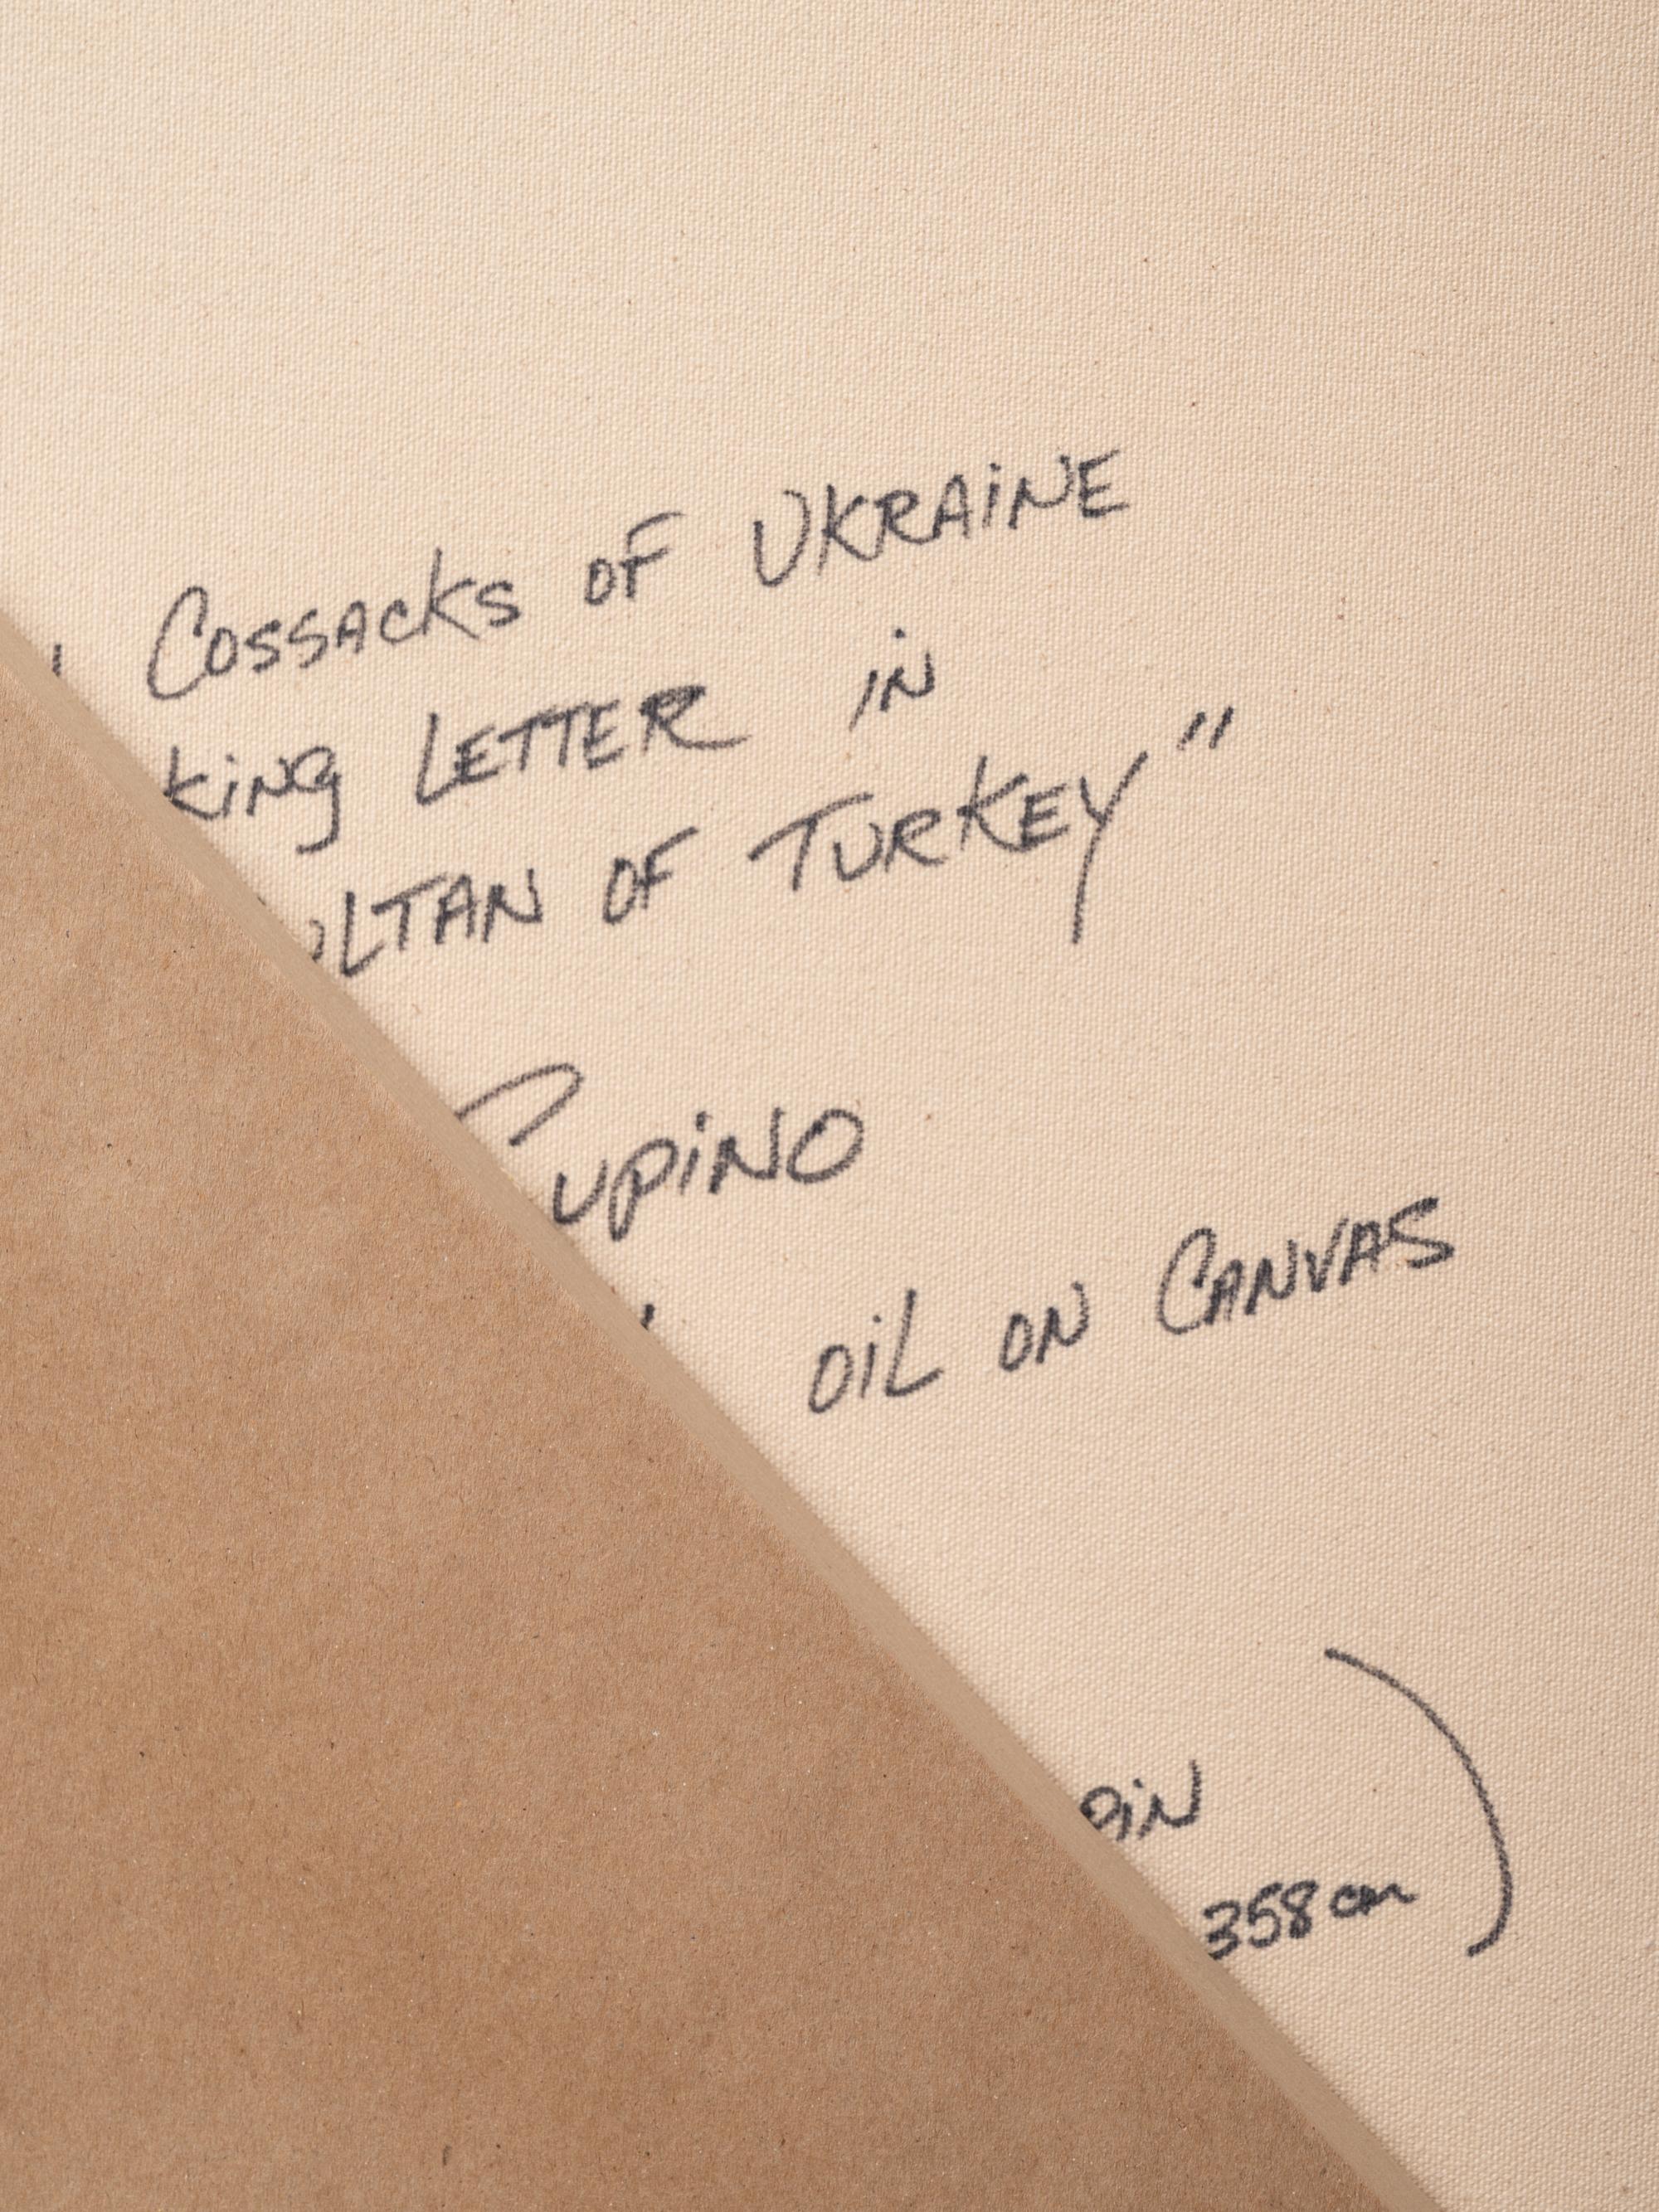 Cossacks of Ukraine
king Letter in
ltan of Turkey"
upino
oil on Canvas
pin
358 cm )